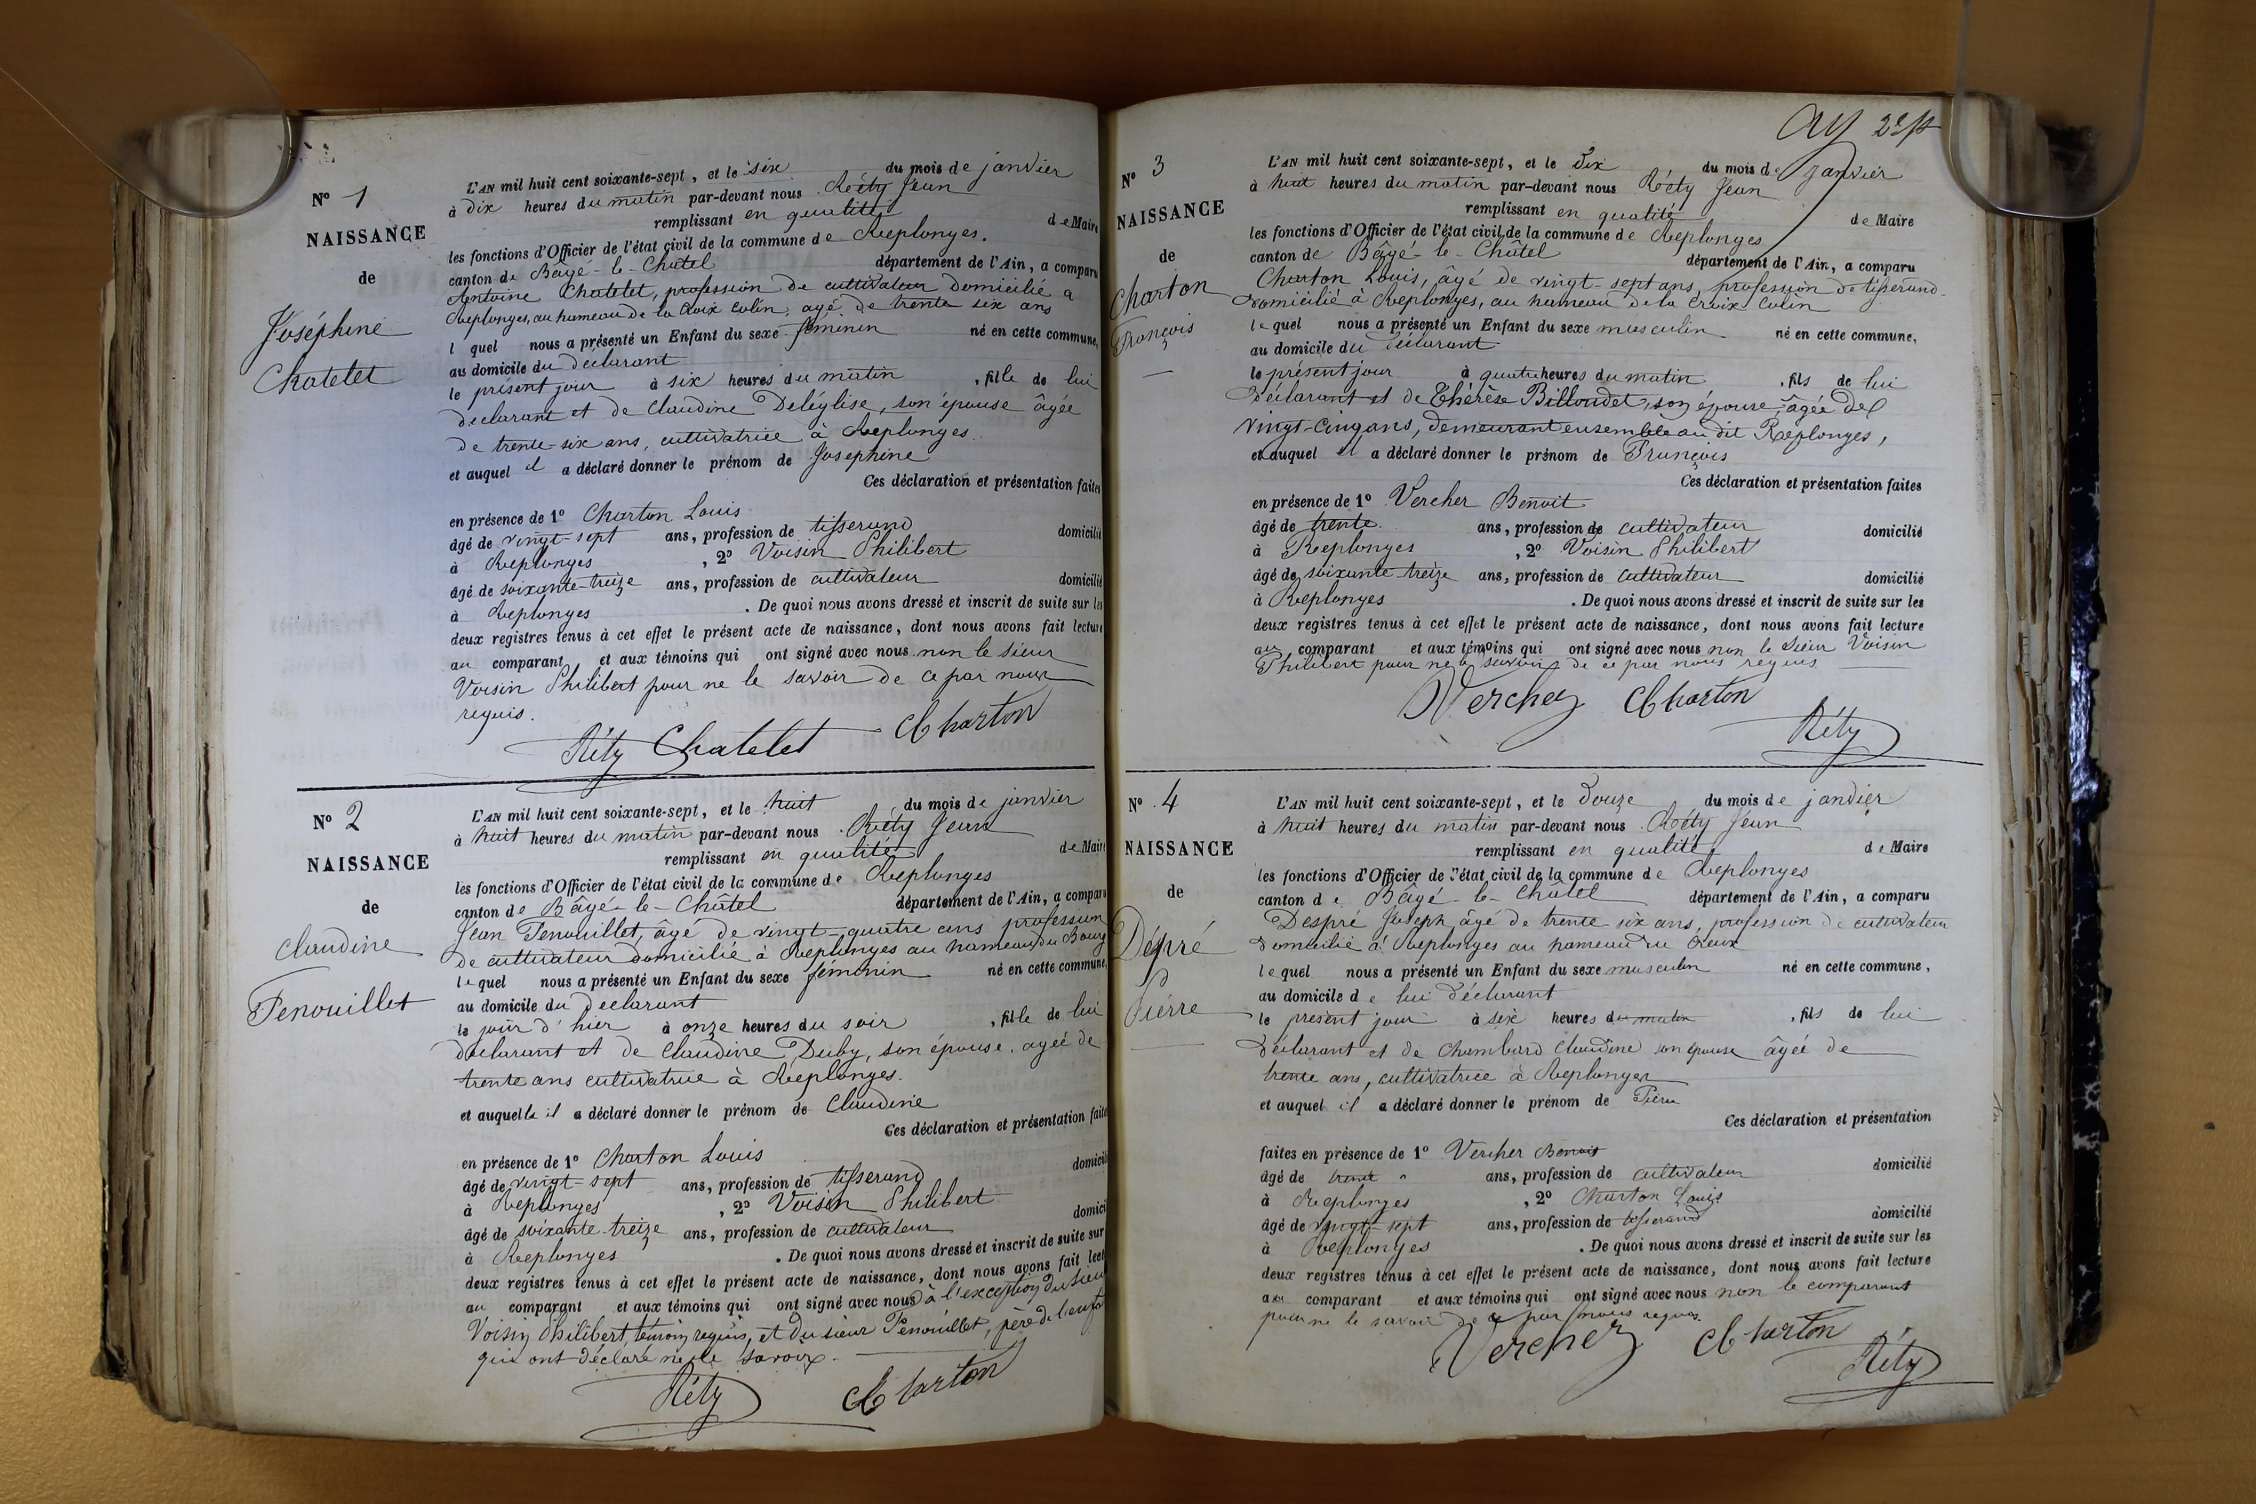 N° 1
NAISSANCE
de
Joséphine
Chatelet
L'AN mil huit cent soixante-sept, et le six du mois de janvier
à dix heures du matin par-devant nous Réty Jean
remplissant en qualité de Maire
les fonctions d'Officier de l'état civil de la commune de Replonges.
canton de Bâgé-le-Châtel département de l'Ain, a comparu
Antoine Chatelet, profession de cultivateur domicilié a
Replonges, au hameau de la Croix Colin, agé de trente six ans
l quel nous a présenté un Enfant du sexe féminin né en cette commune,
au domicile du déclarant
le présent jour à six heures du matin, fille de lui
déclarant et de Claudine Deléglise, son épouse âgée
de trente-six ans, cultivatrice à Replonges.
et auquel il a déclaré donner le prénom de Joséphine
Ces déclaration et présentation faites
en présence de 1° Charton Louis
âgé de vingt-sept ans, profession de tisserand domicilié
à Replonges, 2° Voisin Philibert
âgé de soixante-treize ans, profession de cultivateur domicilié
à Replonges. De quoi nous avons dressé et inscrit de suite sur les
deux registres tenus à cet effet le présent acte de naissance, dont nous avons fait lecture
au comparant et aux témoins qui ont signé avec nous non le sieur
Voisin Philibert pour ne le savoir de ce par nous
requis.
Réty Chatelet Charton
N° 2
NAISSANCE
de
Claudine
Fenouillet
L'AN mil huit cent soixante-sept, et le huit du mois de janvier
à huit heures du matin par-devant nous Réty Jean
remplissant en qualité de Maire
les fonctions d'Officier de l'état civil de la commune de Replonges
canton de Bâgé-le-Châtel département de l'Ain, a comparu
Jean Fenouillet, âgé de vingt-quatre ans profession
de cultivateur domicilié à Replonges au hameau du Bourg
lequel nous a présenté un Enfant du sexe féminin né en cette commune,
au domicile du déclarant
le jour d'hier à onze heures du soir, fille de lui
déclarant et de Claudine Duby, son épouse, agée de
trente ans cultivatrice à Replonges.
et auquella il a déclaré donner le prénom de Claudine
Ces déclaration et présentation faite
en présence de 1° Charton Louis
âgé de vingt-sept ans, profession de tisserand domicil
à Replonges, 2° Voisin Philibert
âgé de soixante-treize ans, profession de cultivateur domici
à Replonges. De quoi nous avons dressé et inscrit de suite sur
deux registres tenus à cet effet le présent acte de naissance, dont nous avons fait lect
au comparant et aux témoins qui ont signé avec nous à l'exception du sieur
Voisin Philibert, témoin requis, et du sieur Fenouillet, père de l'enft
qui ont déclaré ne le savoir.
Réty Charton
2e
N° 3
NAISSANCE
de
Charton
François
L'AN mil huit cent soixante-sept, et le dix du mois de janvier
à huit heures du matin par-devant nous Réty Jean
remplissant en qualité de Maire
les fonctions d'Officier de l'état civil de la commune de Replonges
canton de Bâgé-le-Châtel département de l'Ain, a comparu
Charton Louis, âgé de vingt-sept ans, profession de tisserand
domicilié à Replonges, au hameau de la Croix Colin
lequel nous a présenté un Enfant du sexe masculin né en cette commune,
au domicile du déclarant
le présent jour à quatre heures du matin, fils de lui
déclarant et de Thérèse Billoudet, son épouse, âgée de
vingt-cinq ans, demeurant ensemble au dit Replonges,
et auquel il a déclaré donner le prénom de François
Ces déclaration et présentation faites
en présence de 1° Vercher Benoit
âgé de trente ans, profession de cultivateur domicilié
à Replonges, 2° Voisin Philibert
âgé de soixante-treize ans, profession de cultivateur domicilié
à Replonges. De quoi nous avons dressé et inscrit de suite sur les
deux registres tenus à cet effet le présent acte de naissance, dont nous avons fait lecture
au comparant et aux témoins qui ont signé avec nous non le sieur Voisin
Philibert pour ne le savoir de ce par nous requis
Vercher Charton
Réty
N° 4
NAISSANCE
de
Dépré
Pierre
L'AN mil huit cent soixante-sept, et le douze du mois de janvier
à huit heures du matin par-devant nous Réty Jean
remplissant en qualité de Maire
les fonctions d'Officier de l'état civil de la commune de Replonges
canton de Bâgé-le-Châtel département de l'Ain, a comparu
Despré Joseph âgé de trente six ans, profession de cultivateur
domicilié à Replonges au hameau du Creux
lequel nous a présenté un Enfant du sexe masculin né en cette commune,
au domicile de lui déclarant
le présent jour à six heures du matin, fils de lui
déclarant et de Chambard Claudine son épouse âgée de
trente ans, cultivatrice à Replonges
et auquel il a déclaré donner le prénom de Pierre
Ces déclaration et présentation
faites en présence de 1° Vercher Benoit
âgé de trente ans, profession de cultivateur domicilié
à Replonges, 2° Charton Louis
âgé de vingt-sept ans, profession de tisserand domicilié
à Replonges. De quoi nous avons dressé et inscrit de suite sur les
deux registres tenus à cet effet le présent acte de naissance, dont nous avons fait lecture
au comparant et aux témoins qui ont signé avec nous non le comparant
pour ne le savoir de ce par nous requis
Vercher Charton
Réty